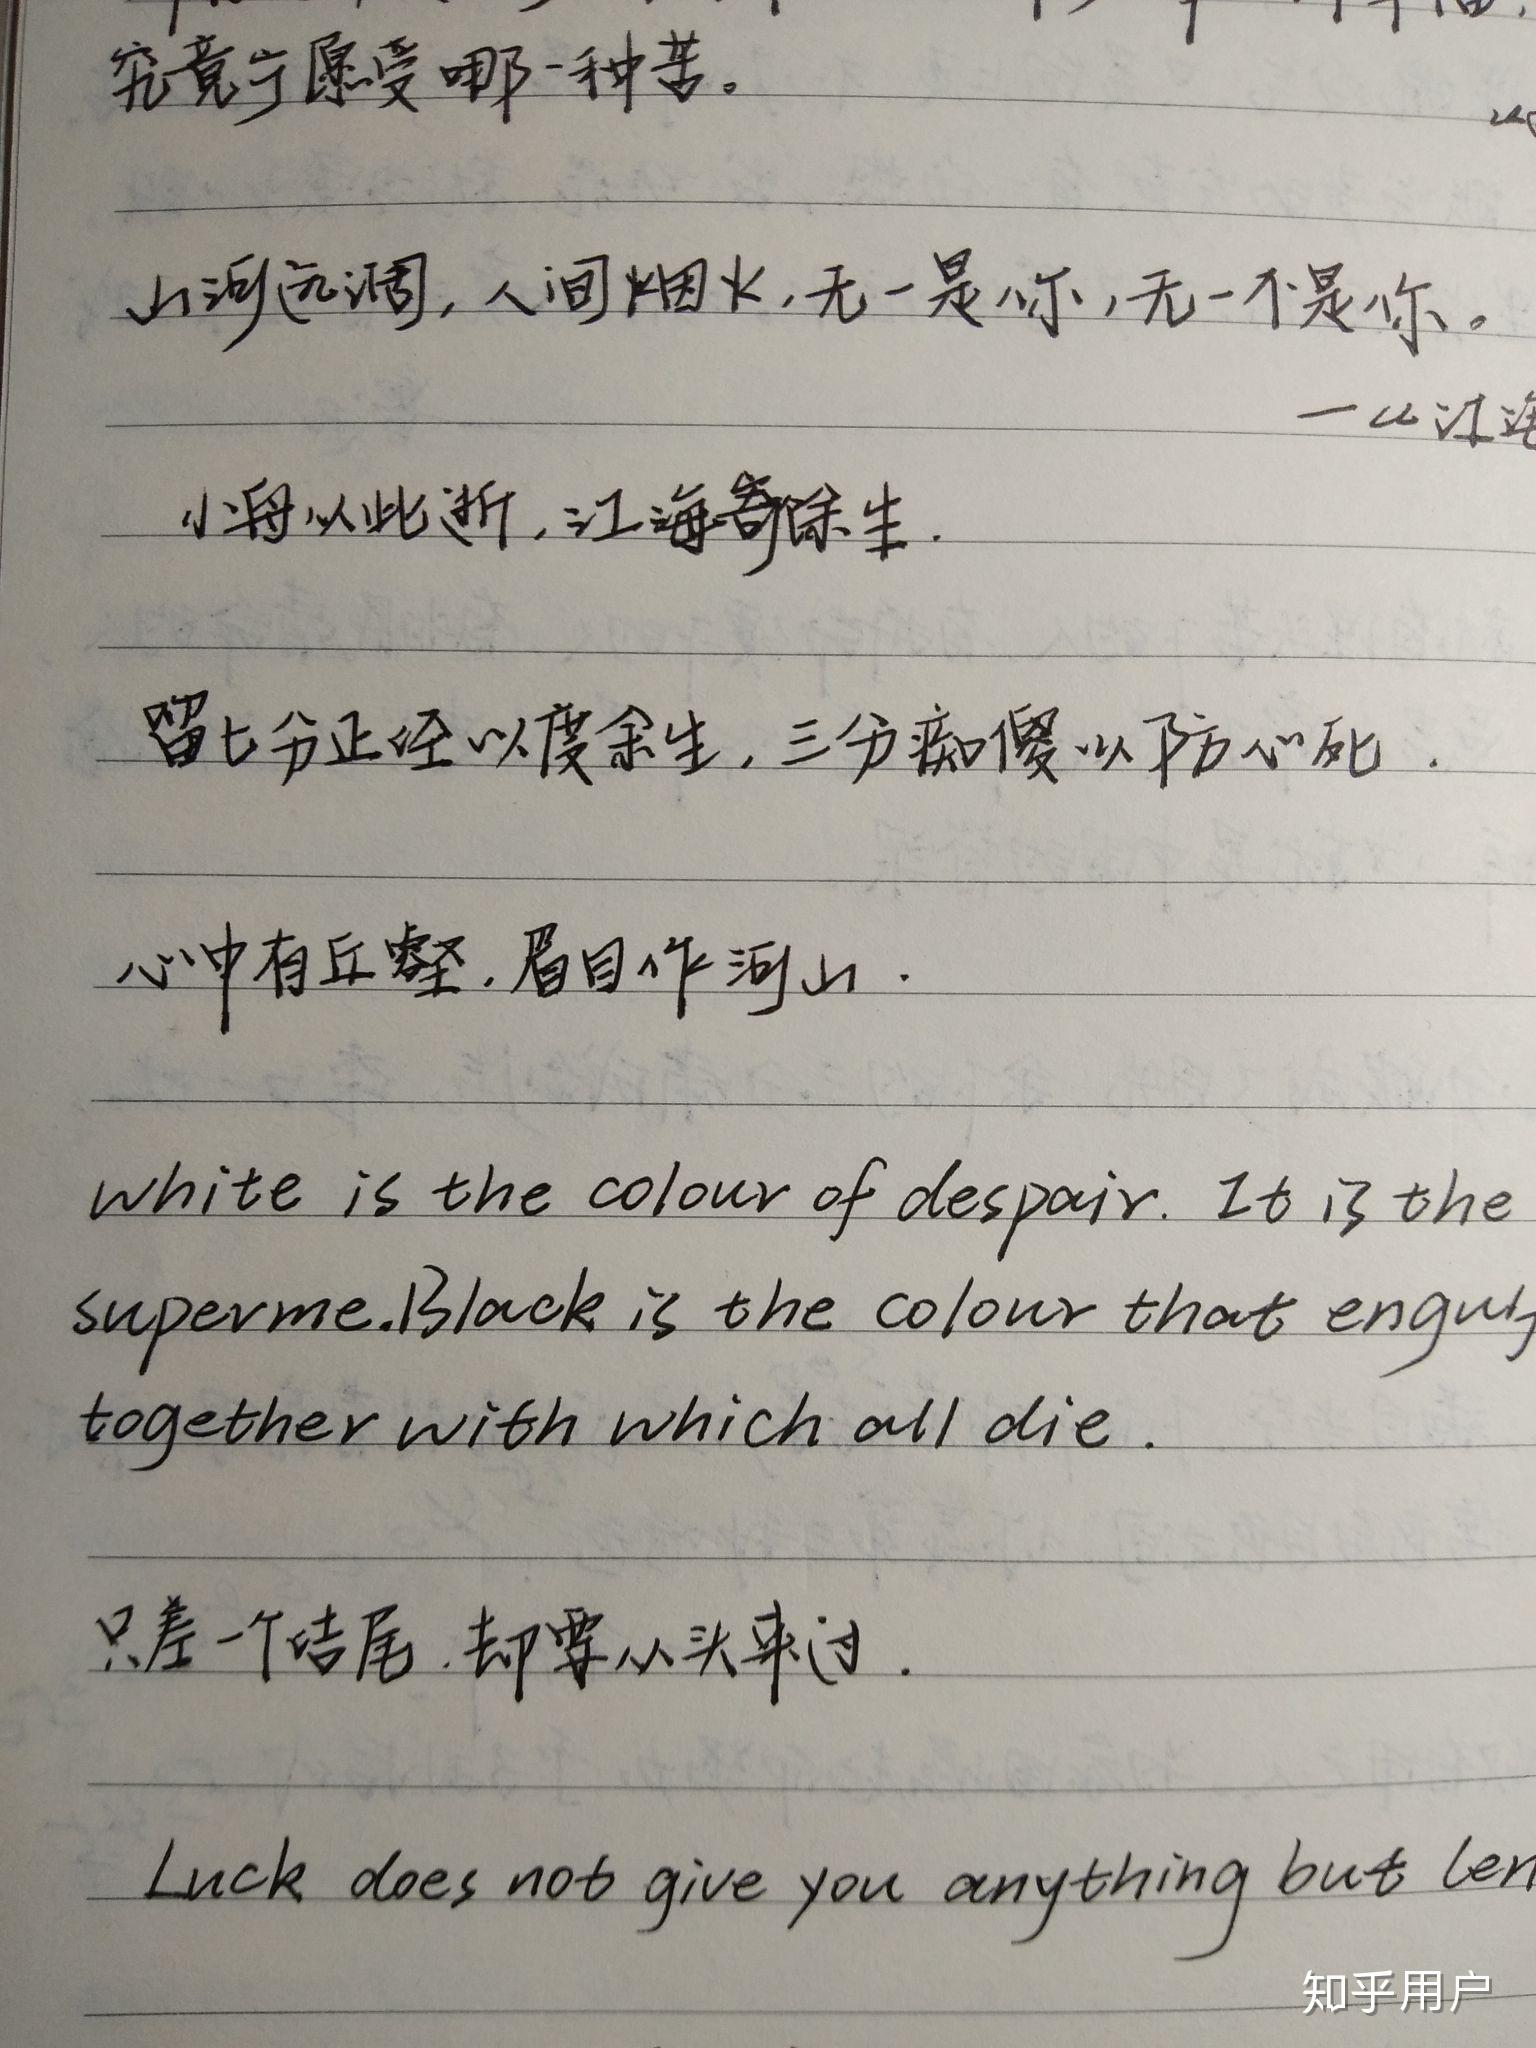 究竟宁愿受哪一种苦。
山河远阔,人间烟火,无一是你,无一不是你。
小舟以此逝,江海寄余生.
留七分正经以度余生,三分痴傻以防心死.
心中有丘壑,眉目作河山.
white is the colour of despair. It is the
superme.Black is the colour that
together with which all die.
只差一个结尾,却要从头来过.
Luck does not give you anything but
知乎用户